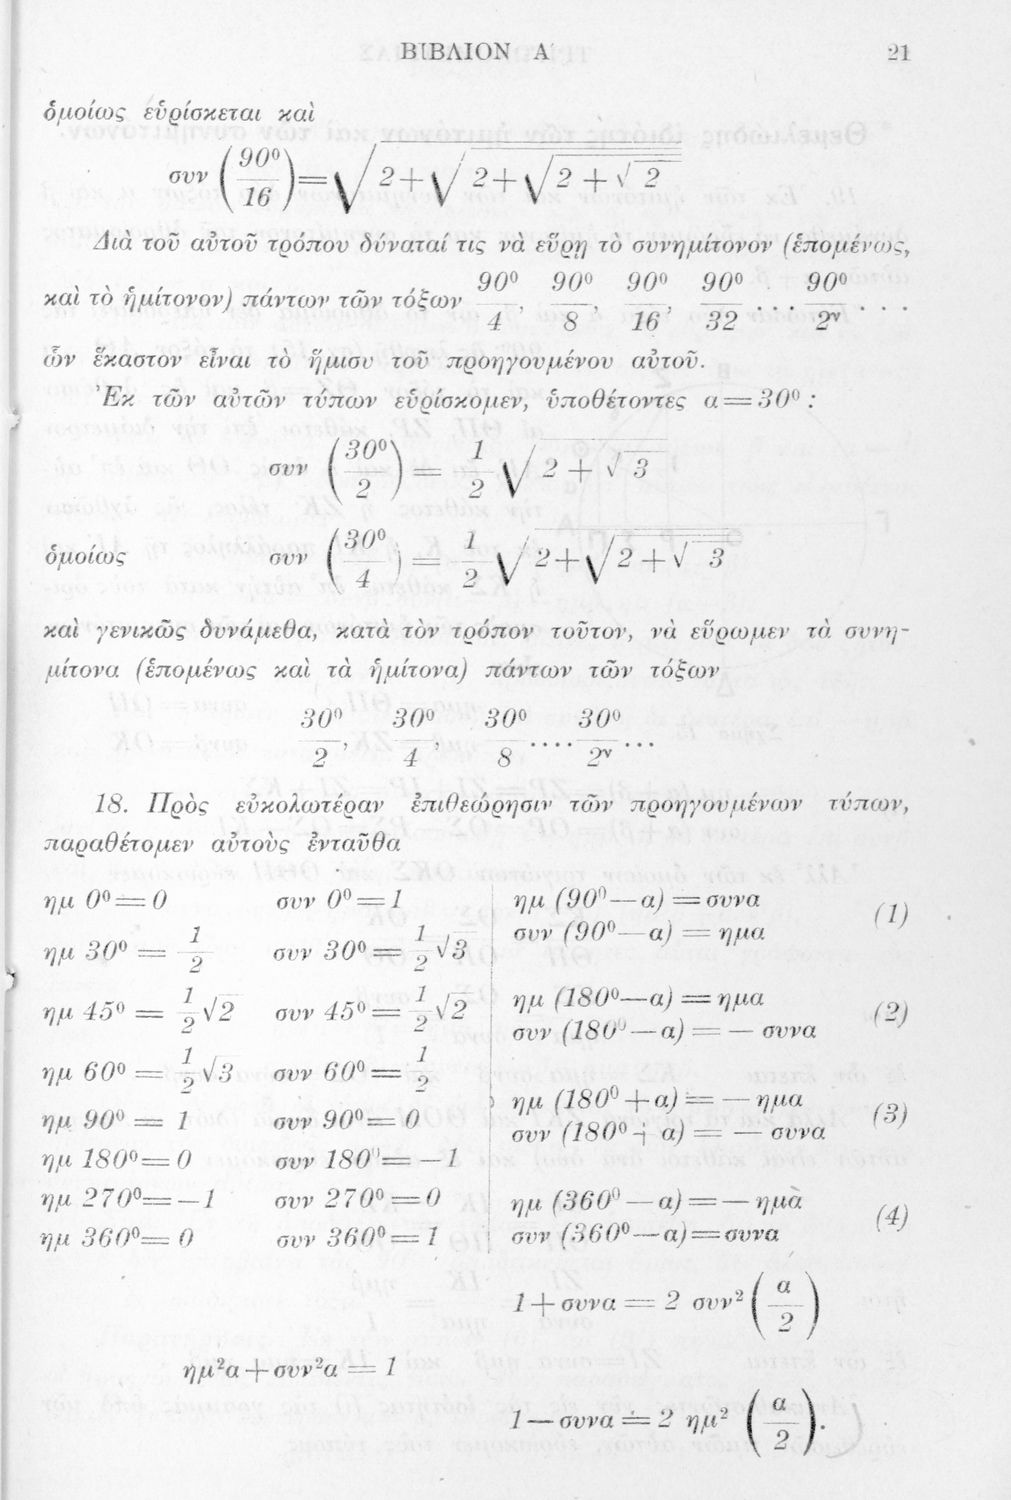 ΒΙΒΛΙΟΝ Α΄ 21
ὁμοίως εὑρίσκεται καὶ
συν (90⁰/16) = √(2+√(2+√(2+√2)))
Διὰ τοῦ αὐτοῦ τρόπου δύναταί τις νὰ εὕρῃ τὸ συνημίτονον (ἑπομένως,
καὶ τὸ ἡμίτονον) πάντων τῶν τόξων 90⁰/4, 90⁰/8, 90⁰/16, 90⁰/32 ... 90⁰/2ᵛ ...
ὧν ἕκαστον εἶναι τὸ ἥμισυ τοῦ προηγουμένου αὐτοῦ.
Ἐκ τῶν αὐτῶν τύπων εὑρίσκομεν, ὑποθέτοντες α=30⁰ :
συν (30⁰/2) = 1/2 √(2+√3)
ὁμοίως συν (30⁰/4) = 1/2 √(2+√(2+√3))
καὶ γενικῶς δυνάμεθα, κατὰ τὸν τρόπον τοῦτον, νὰ εὕρωμεν τὰ συνη-
μίτονα (ἑπομένως καὶ τὰ ἡμίτονα) πάντων τῶν τόξων
30⁰/2, 30⁰/4, 30⁰/8 .... 30⁰/2ᵛ ...
18. Πρὸς εὐκολωτέραν ἐπιθεώρησιν τῶν προηγουμένων τύπων,
παραθέτομεν αὐτοὺς ἐνταῦθα
ημ 0⁰=0 συν 0⁰=1
ημ 30⁰ = 1/2 συν 30⁰= 1/2 √3
ημ 45⁰ = 1/2 √2 συν 45⁰= 1/2 √2
ημ 60⁰ = 1/2 √3 συν 60⁰= 1/2
ημ 90⁰ = 1 συν 90⁰= 0
ημ 180⁰= 0 συν 180⁰= —1
ημ 270⁰= —1 συν 270⁰=0
ημ 360⁰= 0 συν 360⁰= 1
ημ (90⁰—α) =συνα
συν (90⁰—α) = ημα (1)
ημ (180⁰—α) =ημα
συν (180⁰—α) = — συνα (2)
ημ (180⁰+α) = — ημα
συν (180⁰+ α) = — συνα (3)
ημ (360⁰—α)=— ημὰ
συν (360⁰—α)=συνα (4)
1+συνα = 2 συν² (α/2)
ημ²α+συν²α = 1
1—συνα = 2 ημ² (α/2).